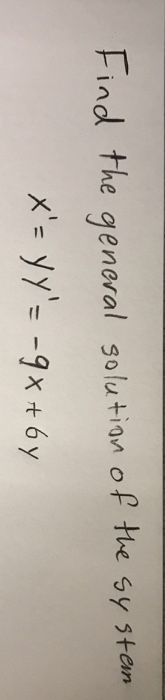 Find the general solution of the system
x' = y y' = -9x + 6y